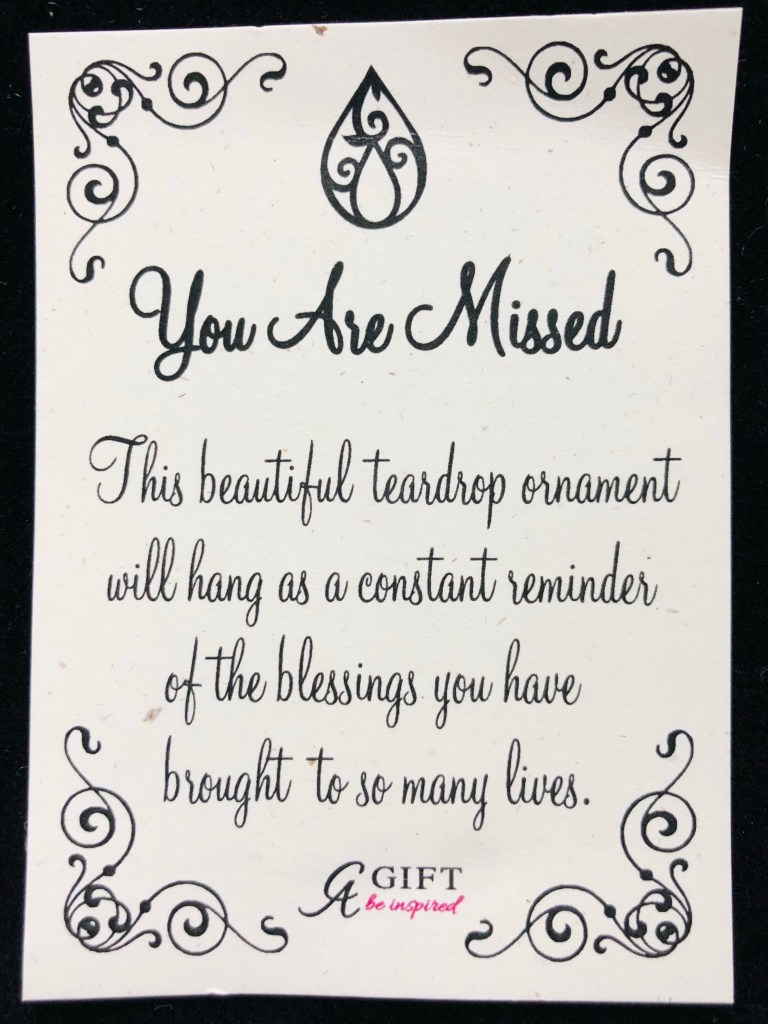 You Are Missed
This beautiful teardrop ornament
will hang as a constant reminder
of the blessings you have
brought to so many lives.
CA GIFT
be inspired